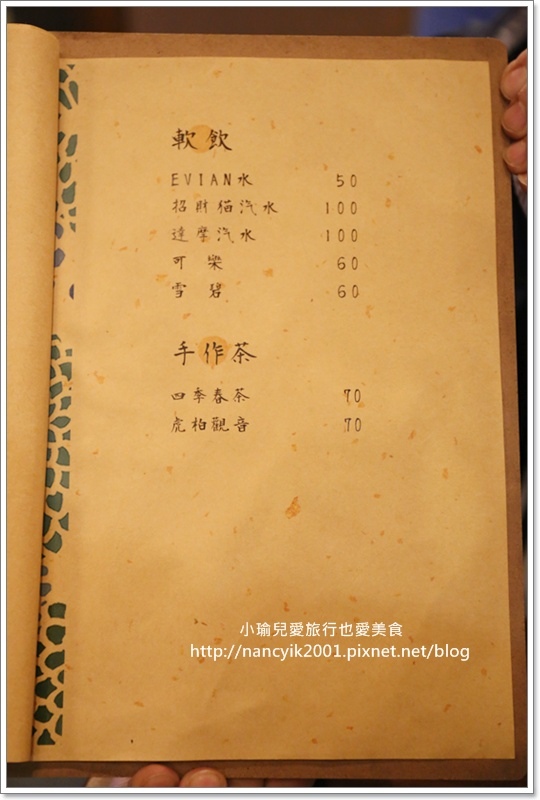 軟飲
EVIAN水 50
招財貓汽水 100
達摩汽水 100
可樂 60
雪碧 60
手作茶
四季春茶 70
虎柏觀音 70
小瑜兒愛旅行也愛美食
http://nancyik2001.pixnet.net/blog